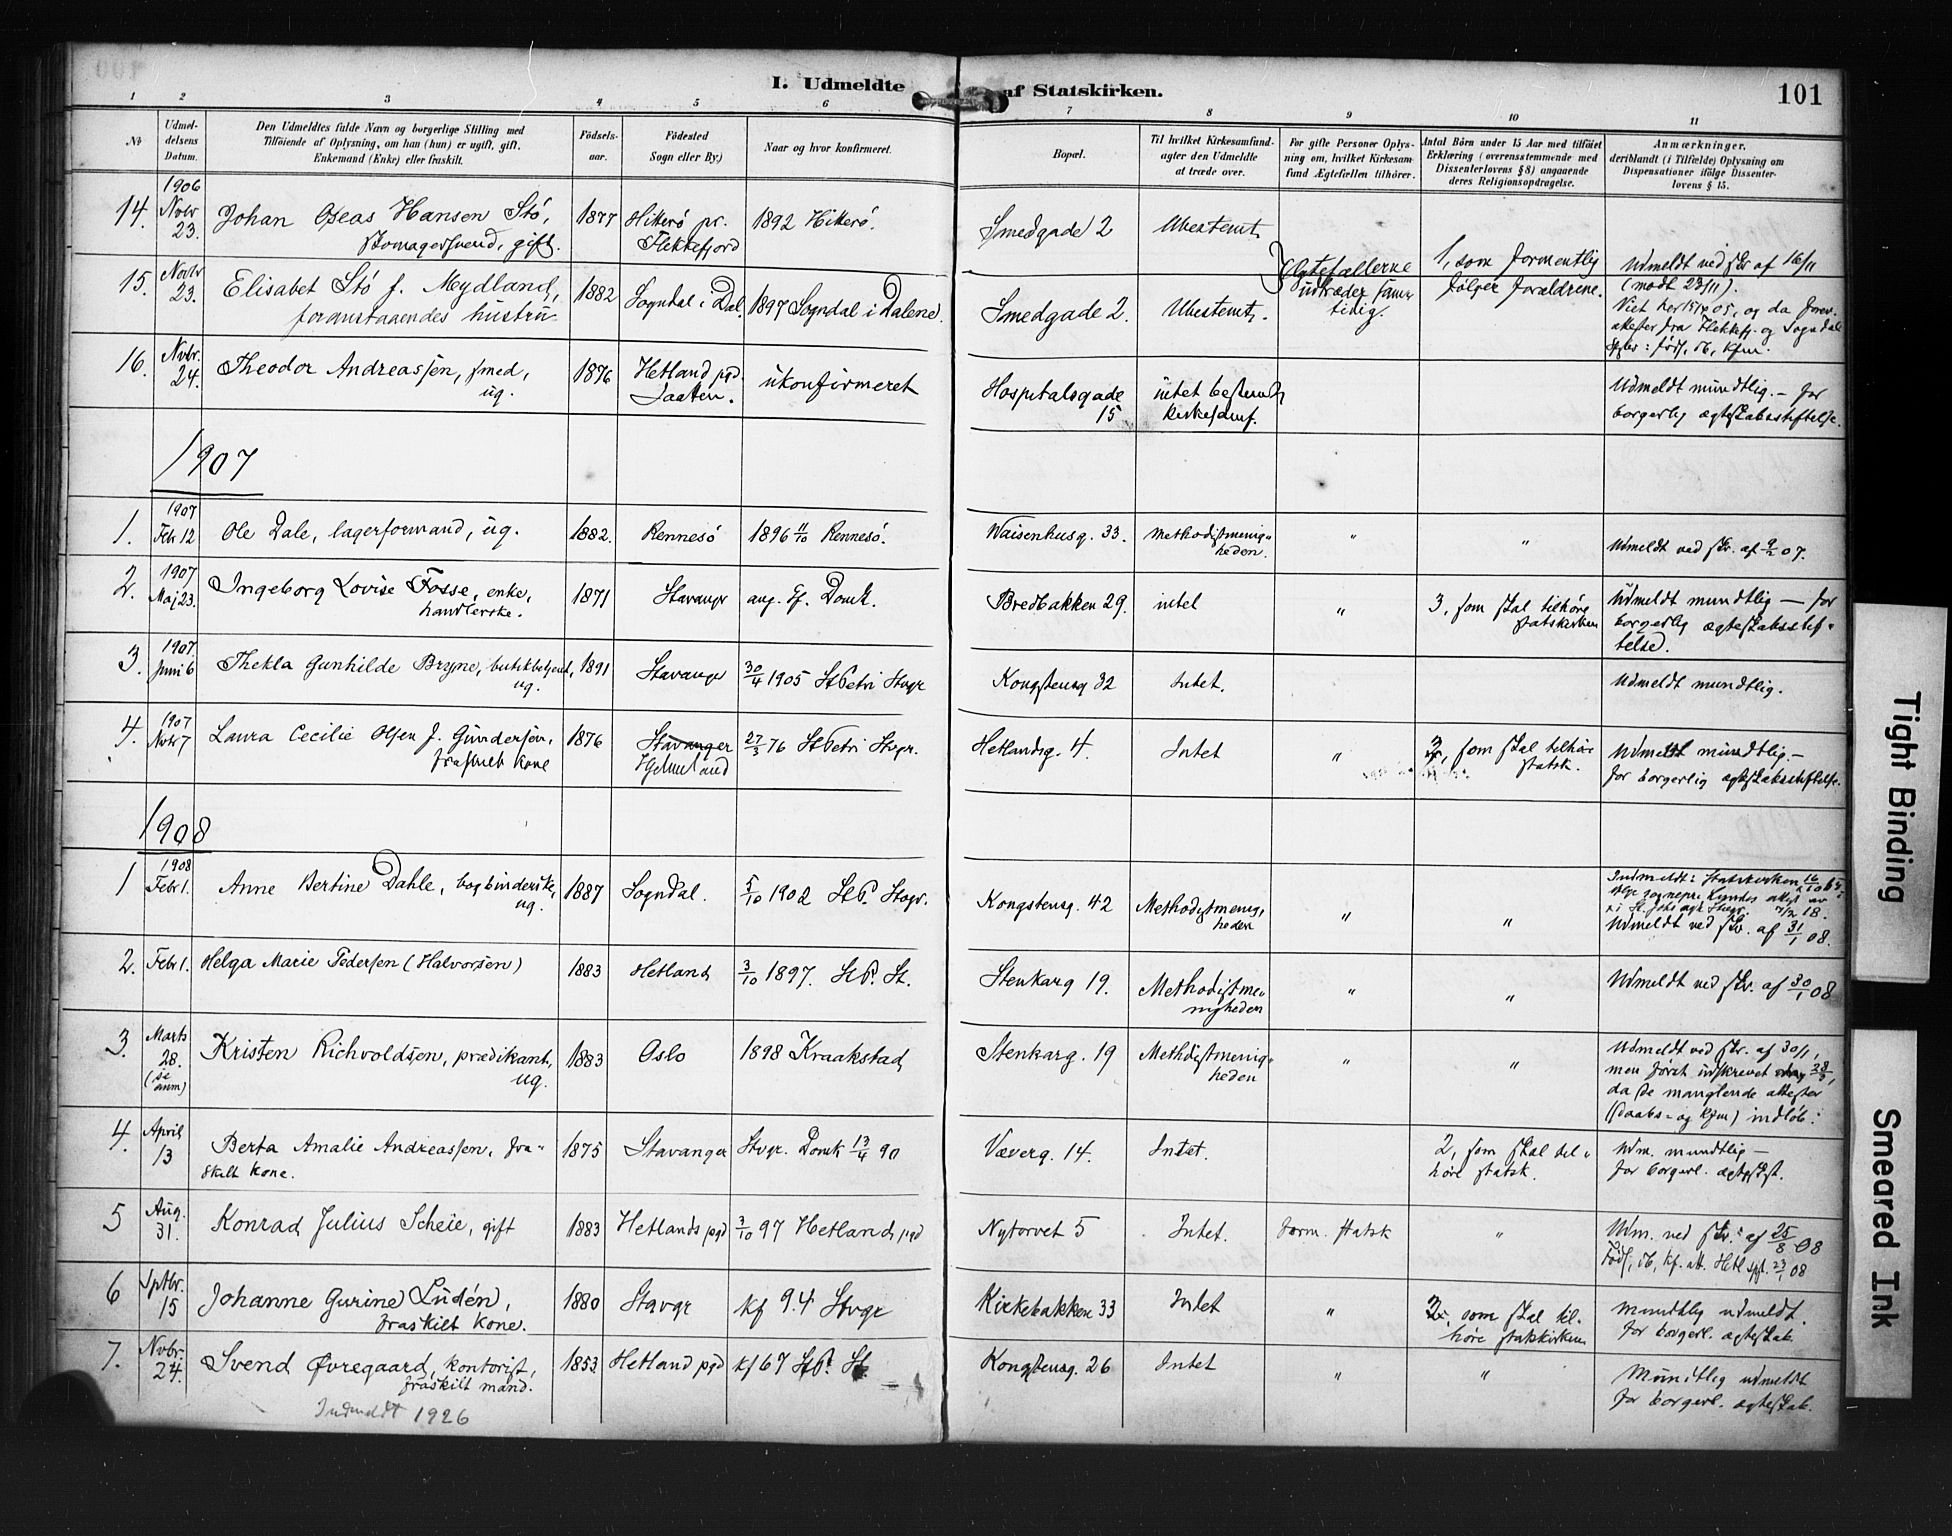 I. Udmeldte af Statskirken.
101
1 2 3 4 5 6 7 8 9 10 11
No
Udmeldelsens Datum.
Den Udmeldtes fulde Navn og borgerlige Stilling med
Tilföiende af Oplysning, om han (hun) er ugift, gift,
Enkemand (Enke) eller fraskilt.
Födselsaar.
Födested
Sogn eller By.)
Naar og hvor konfirmeret.
Bopæl.
Til hvilket Kirkesamfund
agter den Udmeldte
at træde over.
For gifte Personer Oplysning om, hvilket Kirkesamfund Ægtefællen tilhörer.
Antal Börn under 15 Aar med tilföiet
Erklæring (overensstemmende med
Dissenterlovens § 8) angaaende
deres Religionsopdragelse.
Anmærkninger,
deriblandt (i Tilfælde) Oplysning om
Dispensationer ifölge Dissenterlovens § 15.
14. 1906 Novbr 23. Johan Oseas Hansen Stö, skomagersvend, gift. 1877 Hitterö pr. Flekkefjord 1892 Hitterö. Smedgade 2 Ubestemt
Ægtefællerne udtræder samtidig. 1, som formentlig følger forældrene. Udmeldt ved skr. af 16/11 (modt 23/11).
15. Novbr 23. Elisabet Stö f. Mydland, foranstaaendes hustru 1882 Sogndal i Dal. 1897 Sogndal i Dalene. Smedgade 2. Ubestemt.
Viet her 05, og da attester fra Flekkefj. og Sogndal
16. Nvbr. 24. Theodor Andreassen, smed, ug. 1876 Hetland pgd. Jaatten. ukonfirmeret Hospitalsgade 15 intet bestemt kirkesamf. Udmeldt mundtlig. – for borgerlig ægteskabsstiftelse.
1907
1. 1907 Feb 12 Ole Dale, lagerformand, ug. 1882. Rennesö 1896 11/10 Rennesö. Waisenhusg. 33. Methodistmenigheden. " " Udmeldt ved skr. af 9/2 07.
2. 1907 Maj 23. Ingeborg Lovise Fosse, enke, handlerske. 1871 Stavanger ang. kf. Domk. Bredbakken 29. intet " 3, som skal tilhöre statskirken Udmeldt mundtlig – for borgerlig ægteskabsstiftelse.
3. 1907. Juni 6 Thekla Gunhilde Bryne, butikbetjent, ug. 1891 Stavanger 30/4 1905 St Petri Stvgr Kongstensg 32 Intet. Udmeldt mundtlig.
4. 1907 Nvbr 7 Laura Cecilie Olsen f. Gundersen, fraskilt kone 1876 Stavanger Hjelmeland 27/3 76 St Petri Stvgr. Hetlandsg. 4. Intet " 3, som skal tilhöre statsk. Udmeldt mundtlig – for borgerlig ægteskabsstiftelse.
1908
1 1908 Febr 1. Anne Bertine Dahle, bogbinderske, ug. 1887 Sogndal. 5/10 1902 St P. Stvgr. Kongstensg. 42 Methodistmenigheden " " Indmeldt i Statskirken
Udmeldt ved skr. af 31/1 08.
2. Febr 1. Helga Marie Pedersen (Halvorsen) 1883 Hetland 3/10 1897. St P. St. Stenkarg 19. Methodistmenigheden " " Udmeldt ved skr. af 30/1 08
3. Marts 28. (se anm) Kristen Richvoldsen, prædikant, ug. 1883 Oslo 1898 Kraakstad Stenkarg. 19 Methdistmenigheden " " Udmeldt ved skr. af 30/1, men først udskrevet 28/3, da de manglende attester (daabs- og kfm) indløb.
4. April 13 Berta Amalie Andreassen, fraskilt kone. 1875 Stavanger Stvgr. Domk 13/4 90 Væverg. 14. Intet. 2, som skal tilhöre statsk. Udm. mundtlig – for borgerl. ægtesk.st.
5 Aug. 31. Konrad Julius Scheie, gift 1883 Hetlands pgd 3/10 97 Hetland pgd Nytorvet 5 Intet. Form. statsk " Udm. ved skr. af 25/8 08
Föds, db, kf. att. Hetl spr. 23/1 08
6 Sptbr. 15 Johanne Gurine Ludén, fraskilt kone. 1880 Stavgr kf 94 Stvgr Kirkebakken 33 Intet " 2, som skal tilhöre statskirken Mundtlig udmeldt. for borgerl. ægteskab.
7. Nvbr. 24. Svend Øvregaard, kontorist, fraskilt mand. 1853 Hetland pgd kf 67 St P. St. Kongstensg. 26 Intet " " Mundtlig udmeldt for borgerl. ægteskab.
Indmeldt 1926
Tight Binding
Smeared Ink